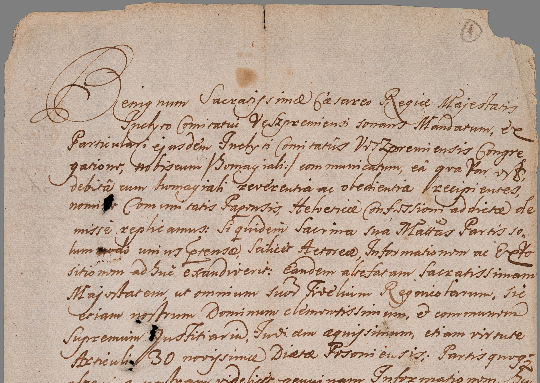 1
Benignum Sacratissimæ Cæsareo Regiæ Majestatis
Inclyto Comitatui Veszpremiensi sonans Mandatum, ex
Particulari ejusdem Inclyti Comitatus Veszpremiensis Congre
gatione, nobiscum /:homagiali:/ communicatum, eâ qua
debitâ cum homagiali reverentia ac obedientia recipientes,
nomine Communitatis Papensis, Helveticæ Confessioni addictæ de
misse replicamus: Siquidem Sacrima Sua Mattas Partis so,
lummodo unius prtensæ Scilicet Actoreæ, Informationem ac Expo
sitionem ad Sue exaudiverit. Eandem altefatam Sacratissimam
Majestatem, ut omnium suor Fidelium Regnicolarum, sic
etiam nostrum Dominum clementissimum, & communem
Supremum Justitiarium, Judicem æquissimum, etiam virtute
Articuli 30 novissimæ Diætæ Posoniensis, Partis quoq
nostram videlicet genuinam Informationem